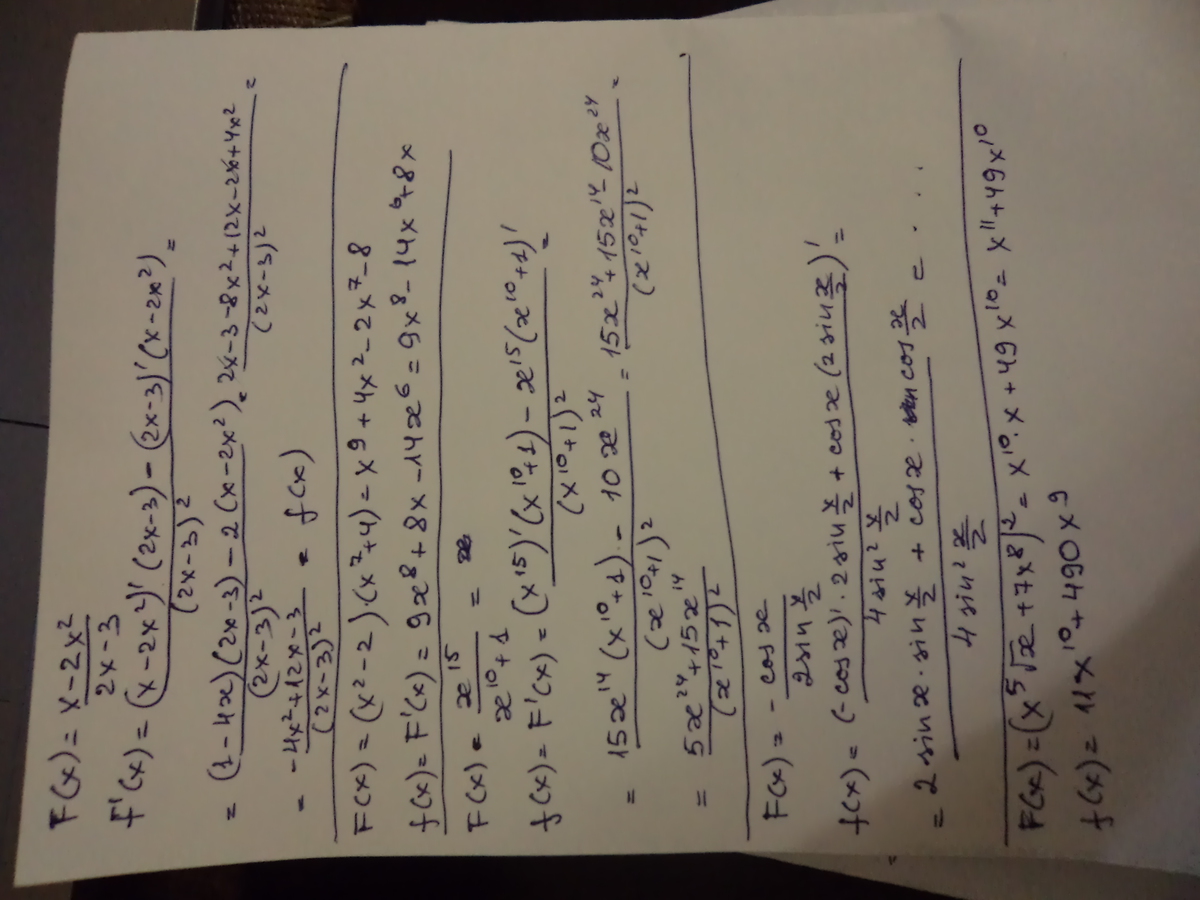 F(x) = \frac{x - 2x^2}{2x - 3}
F'(x) = \frac{(x - 2x^2)'(2x - 3) - (2x - 3)'(x - 2x^2)}{(2x - 3)^2} =
= \frac{(1 - 4x)(2x - 3) - 2(x - 2x^2)}{(2x - 3)^2} = \frac{2x - 3 - 8x^2 + 12x - 2x + 4x^2}{(2x - 3)^2} =
= \frac{-4x^2 + 12x - 3}{(2x - 3)^2} = f(x)
F(x) = (x^2 - 2) \cdot (x^7 + 4) = x^9 + 4x^2 - 2x^7 - 8
f(x) = F'(x) = 9x^8 + 8x - 14x^6 = 9x^8 - 14x^6 + 8x
F(x) = \frac{x^{15}}{x^{10} + 1} =
f(x) = F'(x) = \frac{(x^{15})'(x^{10} + 1) - x^{15}(x^{10} + 1)'}{(x^{10} + 1)^2} =
= \frac{15x^{14}(x^{10} + 1) - 10x^{24}}{(x^{10} + 1)^2} = \frac{15x^{24} + 15x^{14} - 10x^{24}}{(x^{10} + 1)^2} =
= \frac{5x^{24} + 15x^{14}}{(x^{10} + 1)^2}
F(x) = - \frac{cos x}{2 sin \frac{x}{2}}
f(x) = \frac{(-cos x)' \cdot 2 sin \frac{x}{2} + cos x (2 sin \frac{x}{2})'}{4 sin^2 \frac{x}{2}} =
= \frac{2 sin x \cdot sin \frac{x}{2} + cos x \cdot cos \frac{x}{2}}{4 sin^2 \frac{x}{2}} = . . .
F(x) = (x^5 \sqrt{x} + 7x^8)^2 = x^{10} \cdot x + 49x^{10} = x^{11} + 49x^{10}
f(x) = 11x^{10} + 490x^9